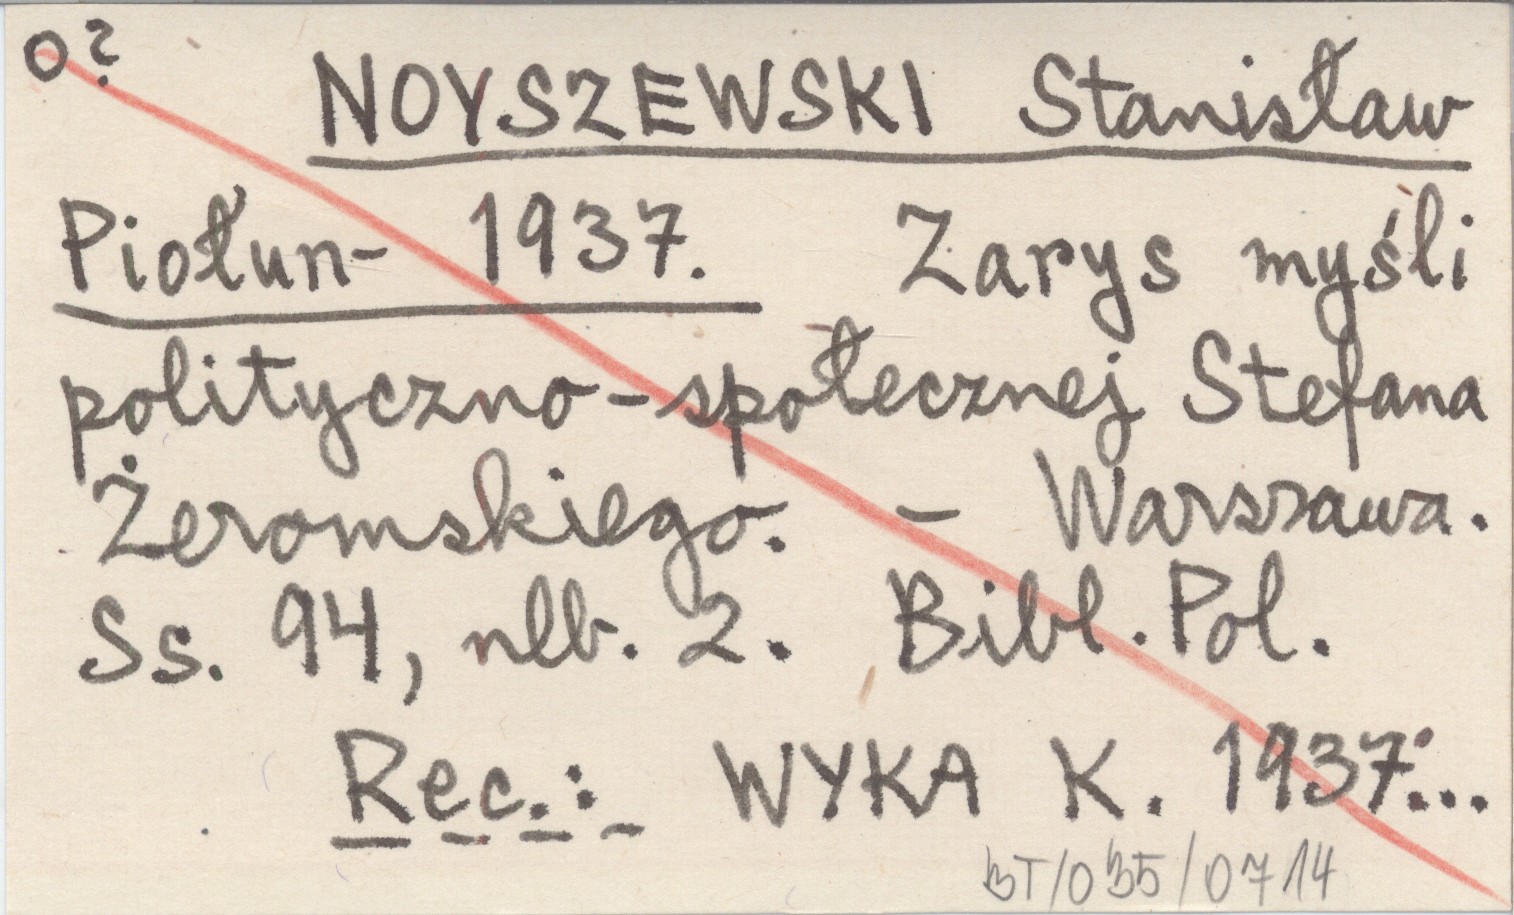 o?
NOYSZEWSKI Stanisław
Piołun- 1937. Zarys myśli
polityczno-społecznej Stefana
Żeromskiego. - Warszawa.
Ss. 94, nlb. 2. Bibl. Pol.
Rec.: WYKA K. 1937:...
BT/035/0714